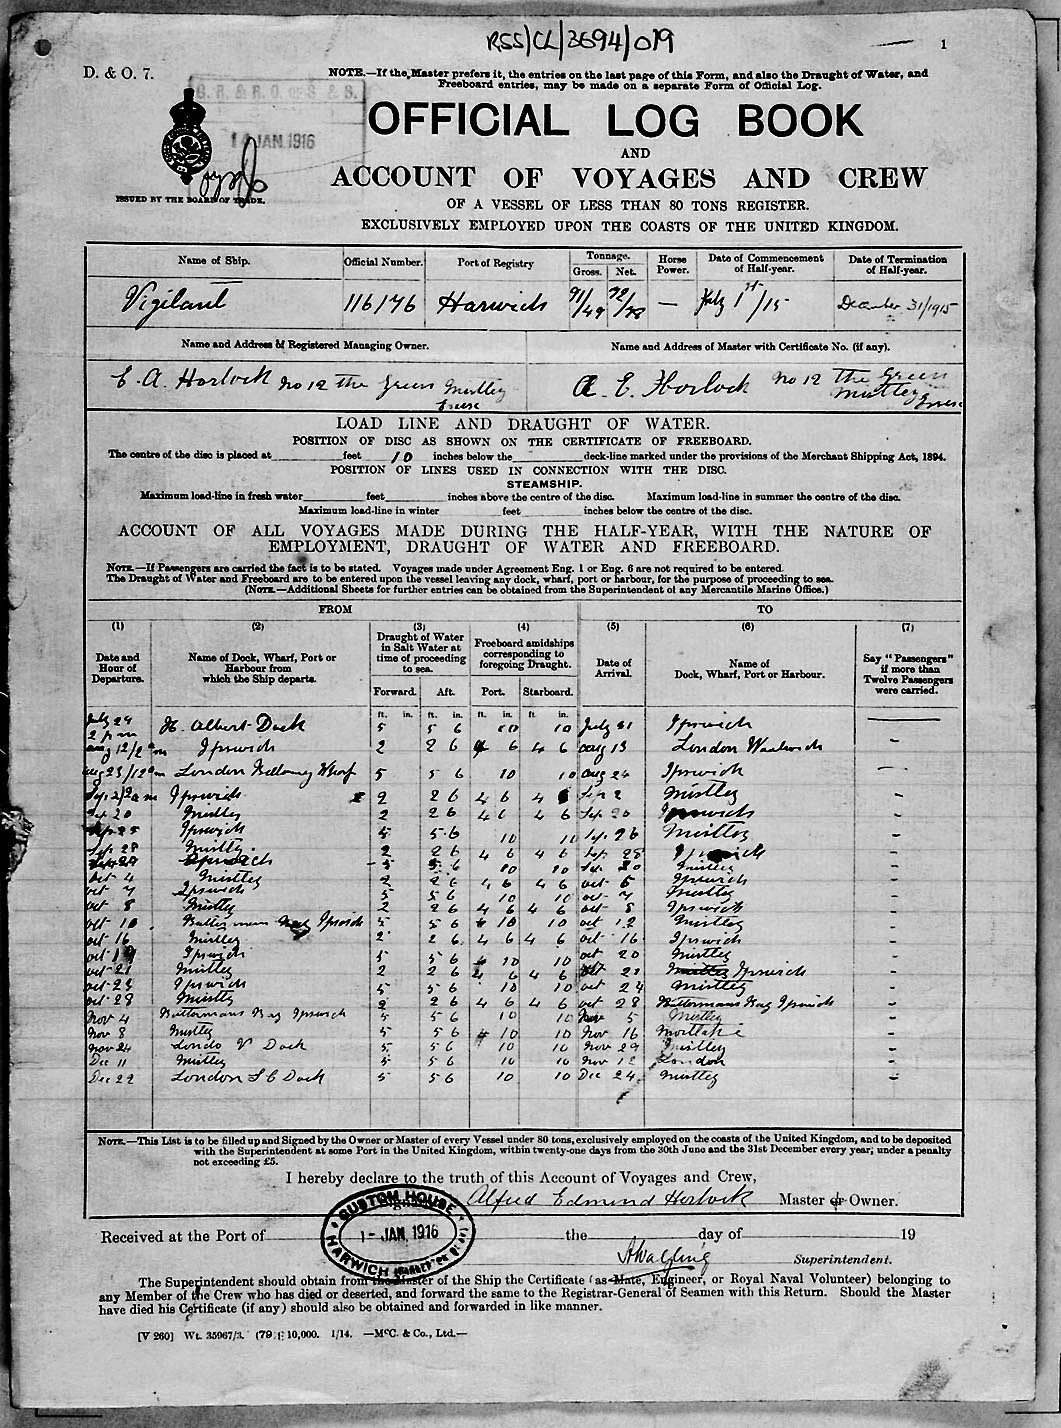 RSS/CL/3694/019
1
D. & O. 7.
NOTE.—If the Master prefers it, the entries on the last page of this Form, and also the Draught of Water, and
Freeboard entries, may be made on a separate Form of Official Log.
G. R. & R. O. OF S. & S.
14 JAN. 1916
OFFICIAL LOG BOOK
AND
ACCOUNT OF VOYAGES AND CREW
ISSUED BY THE BOARD OF TRADE.
OF A VESSEL OF LESS THAN 80 TONS REGISTER.
EXCLUSIVELY EMPLOYED UPON THE COASTS OF THE UNITED KINGDOM.
Name of Ship. Official Number. Port of Registry Tonnage. Gross. Net. Horse Power. Date of Commencement of Half-year. Date of Termination of Half-year.
Vigilant 116176 Harwich 91/49 72/78 — July 1st/15 December 31/1915
Name and Address of Registered Managing Owner. Name and Address of Master with Certificate No. (if any).
E. A. Horlock no 12 the Green Mistley Essex A. E. Horlock no 12 the Green Mistley Essex
LOAD LINE AND DRAUGHT OF WATER.
POSITION OF DISC AS SHOWN ON THE CERTIFICATE OF FREEBOARD.
The centre of the disc is placed at feet 10 inches below the deck-line marked under the provisions of the Merchant Shipping Act, 1894.
POSITION OF LINES USED IN CONNECTION WITH THE DISC.
STEAMSHIP.
Maximum load-line in fresh water feet inches above the centre of the disc. Maximum load-line in summer the centre of the disc.
Maximum load-line in winter feet inches below the centre of the disc.
ACCOUNT OF ALL VOYAGES MADE DURING THE HALF-YEAR, WITH THE NATURE OF
EMPLOYMENT, DRAUGHT OF WATER AND FREEBOARD.
NOTE.—If Passengers are carried the fact is to be stated. Voyages made under Agreement Eng. 1 or Eng. 6 are not required to be entered.
The Draught of Water and Freeboard are to be entered upon the vessel leaving any dock, wharf, port or harbour, for the purpose of proceeding to sea.
(NOTE.—Additional Sheets for further entries can be obtained from the Superintendent of any Mercantile Marine Office.)
FROM TO
(1) (2) (3) (4) (5) (6) (7)
Date and Hour of Departure. Name of Dock, Wharf, Port or Harbour from which the Ship departs. Draught of Water in Salt Water at time of proceeding to sea. Freeboard amidships corresponding to foregoing Draught. Date of Arrival. Name of Dock, Wharf, Port or Harbour. Say "Passengers" if more than Twelve Passengers were carried.
Forward. Aft. Port. Starboard.
ft. in. ft. in. ft. in. ft in.
July 29 2 pm R. Albert Dock 5 5 6 10 10 July 31 Ipswich —
Aug 12/2 am Ipswich 2 2 6 4 6 4 6 Aug 13 London Woolwich -
Aug 23/12 am London Wharf 5 5 6 10 10 Aug 24 Ipswich -
Sep 2/2 am Ipswich 2 2 6 4 6 4 Sep 2 Mistley -
Sep 20 Mistley 2 2 6 4 6 4 6 Sep 20 Ipswich -
Sep 25 Ipswich 5 5 6 10 10 Sep 26 Mistley -
Sep 28 Mistley 2 2 6 4 6 4 6 Sep 28 Ipswich -
Sep 29 Ipswich 5 5 6 10 10 Sep 30 Mistley -
Oct 4 Mistley 2 2 6 4 6 4 6 Oct 5 Ipswich -
Oct 7 Ipswich 5 5 6 10 10 Oct 7 Mistley -
Oct 8 Mistley 2 2 6 4 6 4 6 Oct 8 Ipswich -
Oct 10 Ipswich 5 5 6 10 10 Oct 12 Mistley -
Oct 16 Mistley 2 2 6 4 6 4 6 Oct 16 Ipswich -
Oct 19 Ipswich 5 5 6 10 10 Oct 20 Mistley -
Oct 21 Mistley 2 2 6 4 6 4 6 Oct 21 Mistley Ipswich -
Oct 23 Ipswich 5 5 6 10 10 Oct 24 Mistley -
Oct 28 Mistley 2 2 6 4 6 4 6 Oct 28 Ipswich -
Nov 4 Ipswich 5 5 6 10 10 Nov 5 Mistley -
Nov 8 Mistley 5 5 6 10 10 Nov 16 Mortlake -
Nov 24 Londo V Dock 5 5 6 10 10 Nov 29 Mistley -
Dec 11 Mistley 5 5 6 10 10 Nov 12 London -
Dec 22 London S C Dock 5 5 6 10 10 Dec 24 Mistley -
NOTE.—This List is to be filled up and Signed by the Owner or Master of every Vessel under 80 tons, exclusively employed on the coasts of the United Kingdom, and to be deposited
with the Superintendent at some Port in the United Kingdom, within twenty-one days from the 30th June and the 31st December every year; under a penalty
not exceeding £5.
I hereby declare to the truth of this Account of Voyages and Crew,
Alfred Edmund Horlock Master or Owner.
CUSTOM HOUSE
1 - JAN. 1916
HARWICH
Received at the Port of the day of 19
Superintendent.
The Superintendent should obtain from the Master of the Ship the Certificate (as Mate, Engineer, or Royal Naval Volunteer) belonging to
any Member of the Crew who has died or deserted, and forward the same to the Registrar-General of Seamen with this Return. Should the Master
have died his Certificate (if any) should also be obtained and forwarded in like manner.
[V 260] Wt. 35967/3. (79) 10,000. 1/14. —McC. & Co., Ltd.—